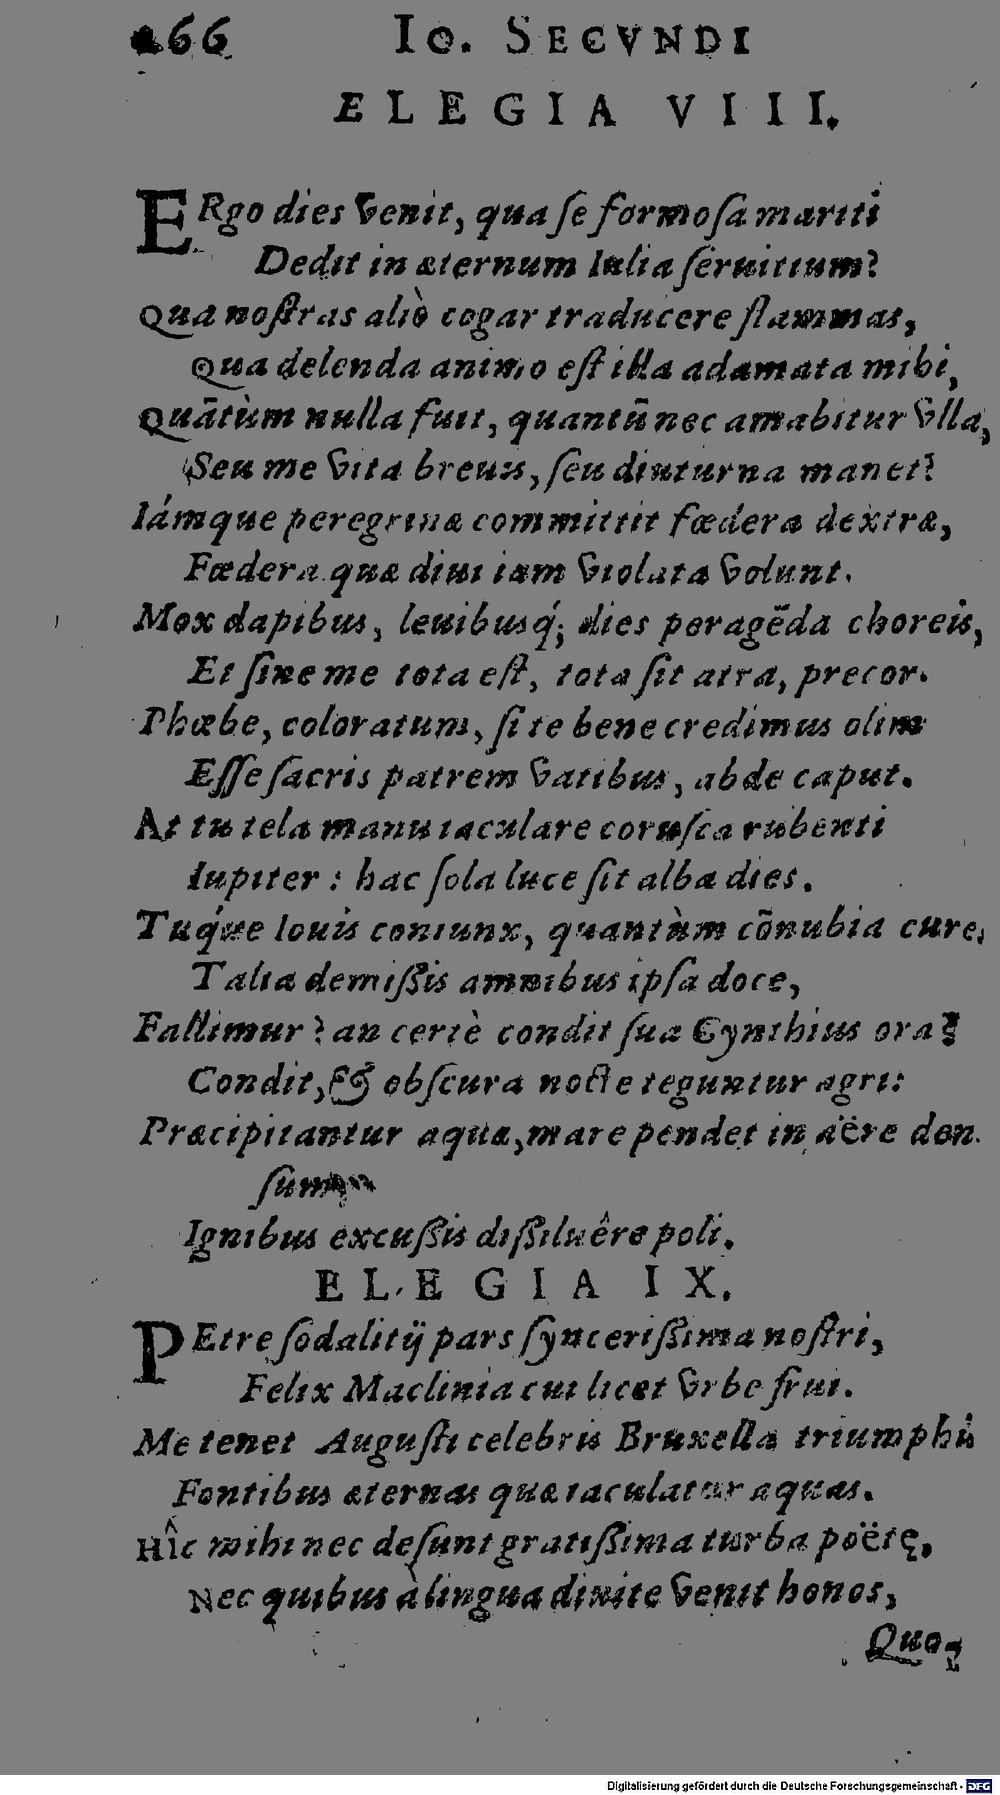 166 Io. Secvndi
ELEGIA VIII.
ERgo dies venit, qua se formosa mariti
Dedit in æternum Iulia seruitium?
Qua nostras aliò cogar traducere flammas,
Qua delenda animo est illa adamata mihi,
Quātùm nulla fuit, quantū nec amabitur vlla,
Seu me vita breuis, seu diuturna manet?
Iámque peregrinæ committit fœdera dextræ,
Fœdera quæ diui iam violata volunt.
Mox dapibus, leuibusq́; dies peragēda choreis,
Et sine me tota est, tota sit atra, precor.
Phœbe, coloratum, si te bene credimus olim
Esse sacris patrem vatibus, abde caput.
At tu tela manu iaculare corusca rubenti
Iupiter: hac sola luce sit alba dies.
Tuq́ue Iouis coniunx, quantùm cōnubia cures
Talia demißis amnibus ipsa doce,
Fallimur? an certè condit sua Cynthius ora?
Condit, & obscura nocte teguntur agri:
Præcipitantur aquæ, mare pendet in aëre den-
sum
Ignibus excußis dißiluêre poli.
ELEGIA IX.
PEtre sodalitij pars syncerißima nostri,
Felix Maclinia cui licet vrbe frui.
Me tenet Augusti celebris Bruxella triumphis
Fontibus æternas quæ iaculatur aquas.
Hîc mihi nec desunt gratißima turba poëtę,
Nec quibus à lingua diuite venit honos,
Quos